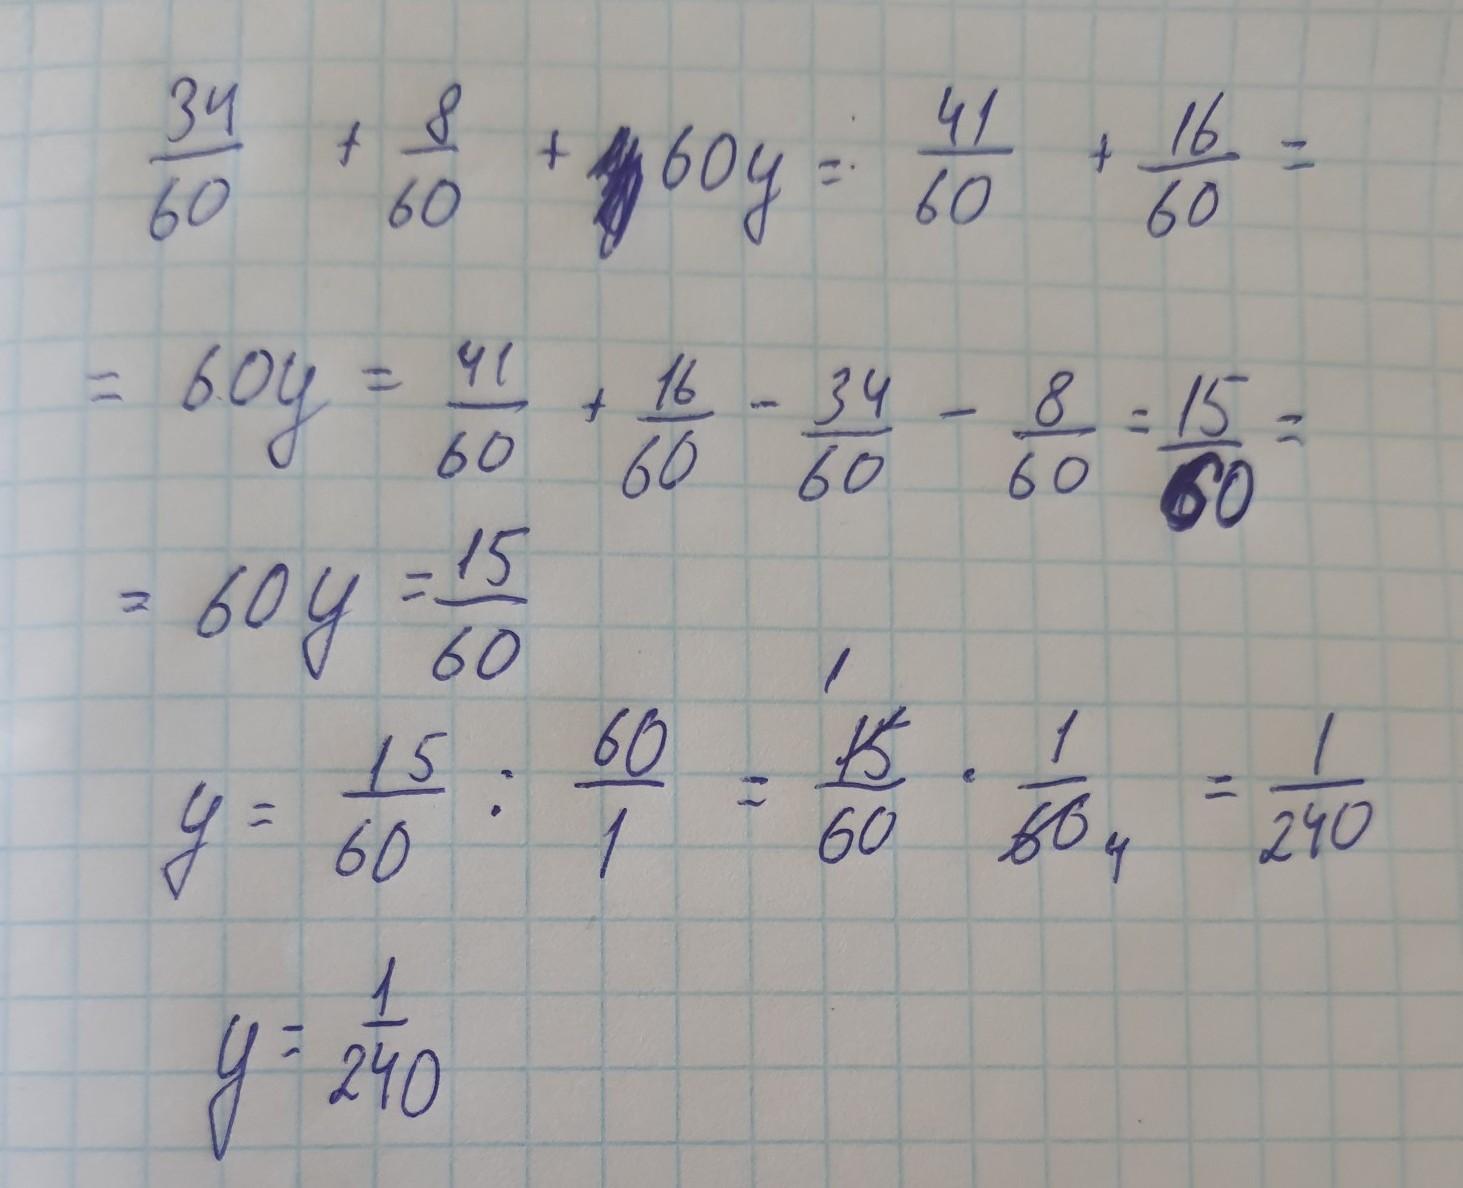 34/60 + 8/60 + 60y = 41/60 + 16/60 =
= 60y = 41/60 + 16/60 - 34/60 - 8/60 = 15/60 =
= 60y = 15/60
y = 15/60 : 60/1 = 15 1/60 · 1/60 4 = 1/240
y = 1/240